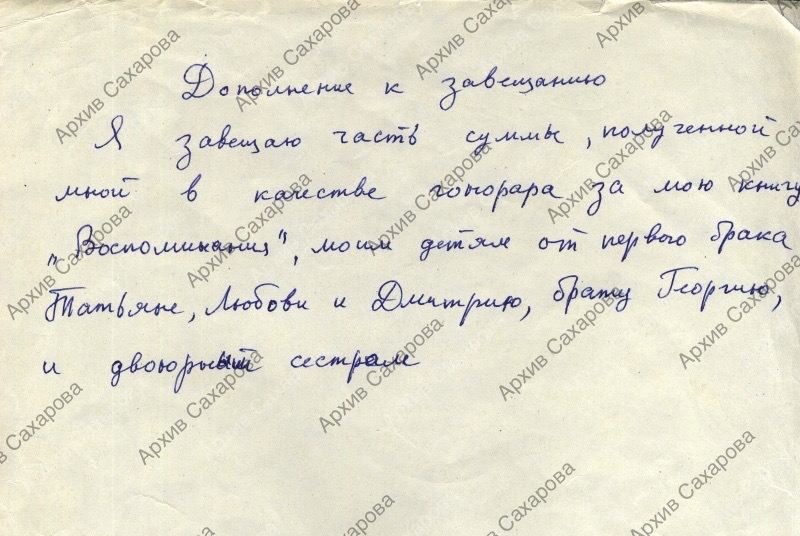 Дополнение к завещанию
Я завещаю часть суммы, полученной
мной в качестве гонорара за мою книгу
„Воспоминания", моим детям от первого брака
Татьяне, Любови и Дмитрию, брату Георгию,
и сестрам